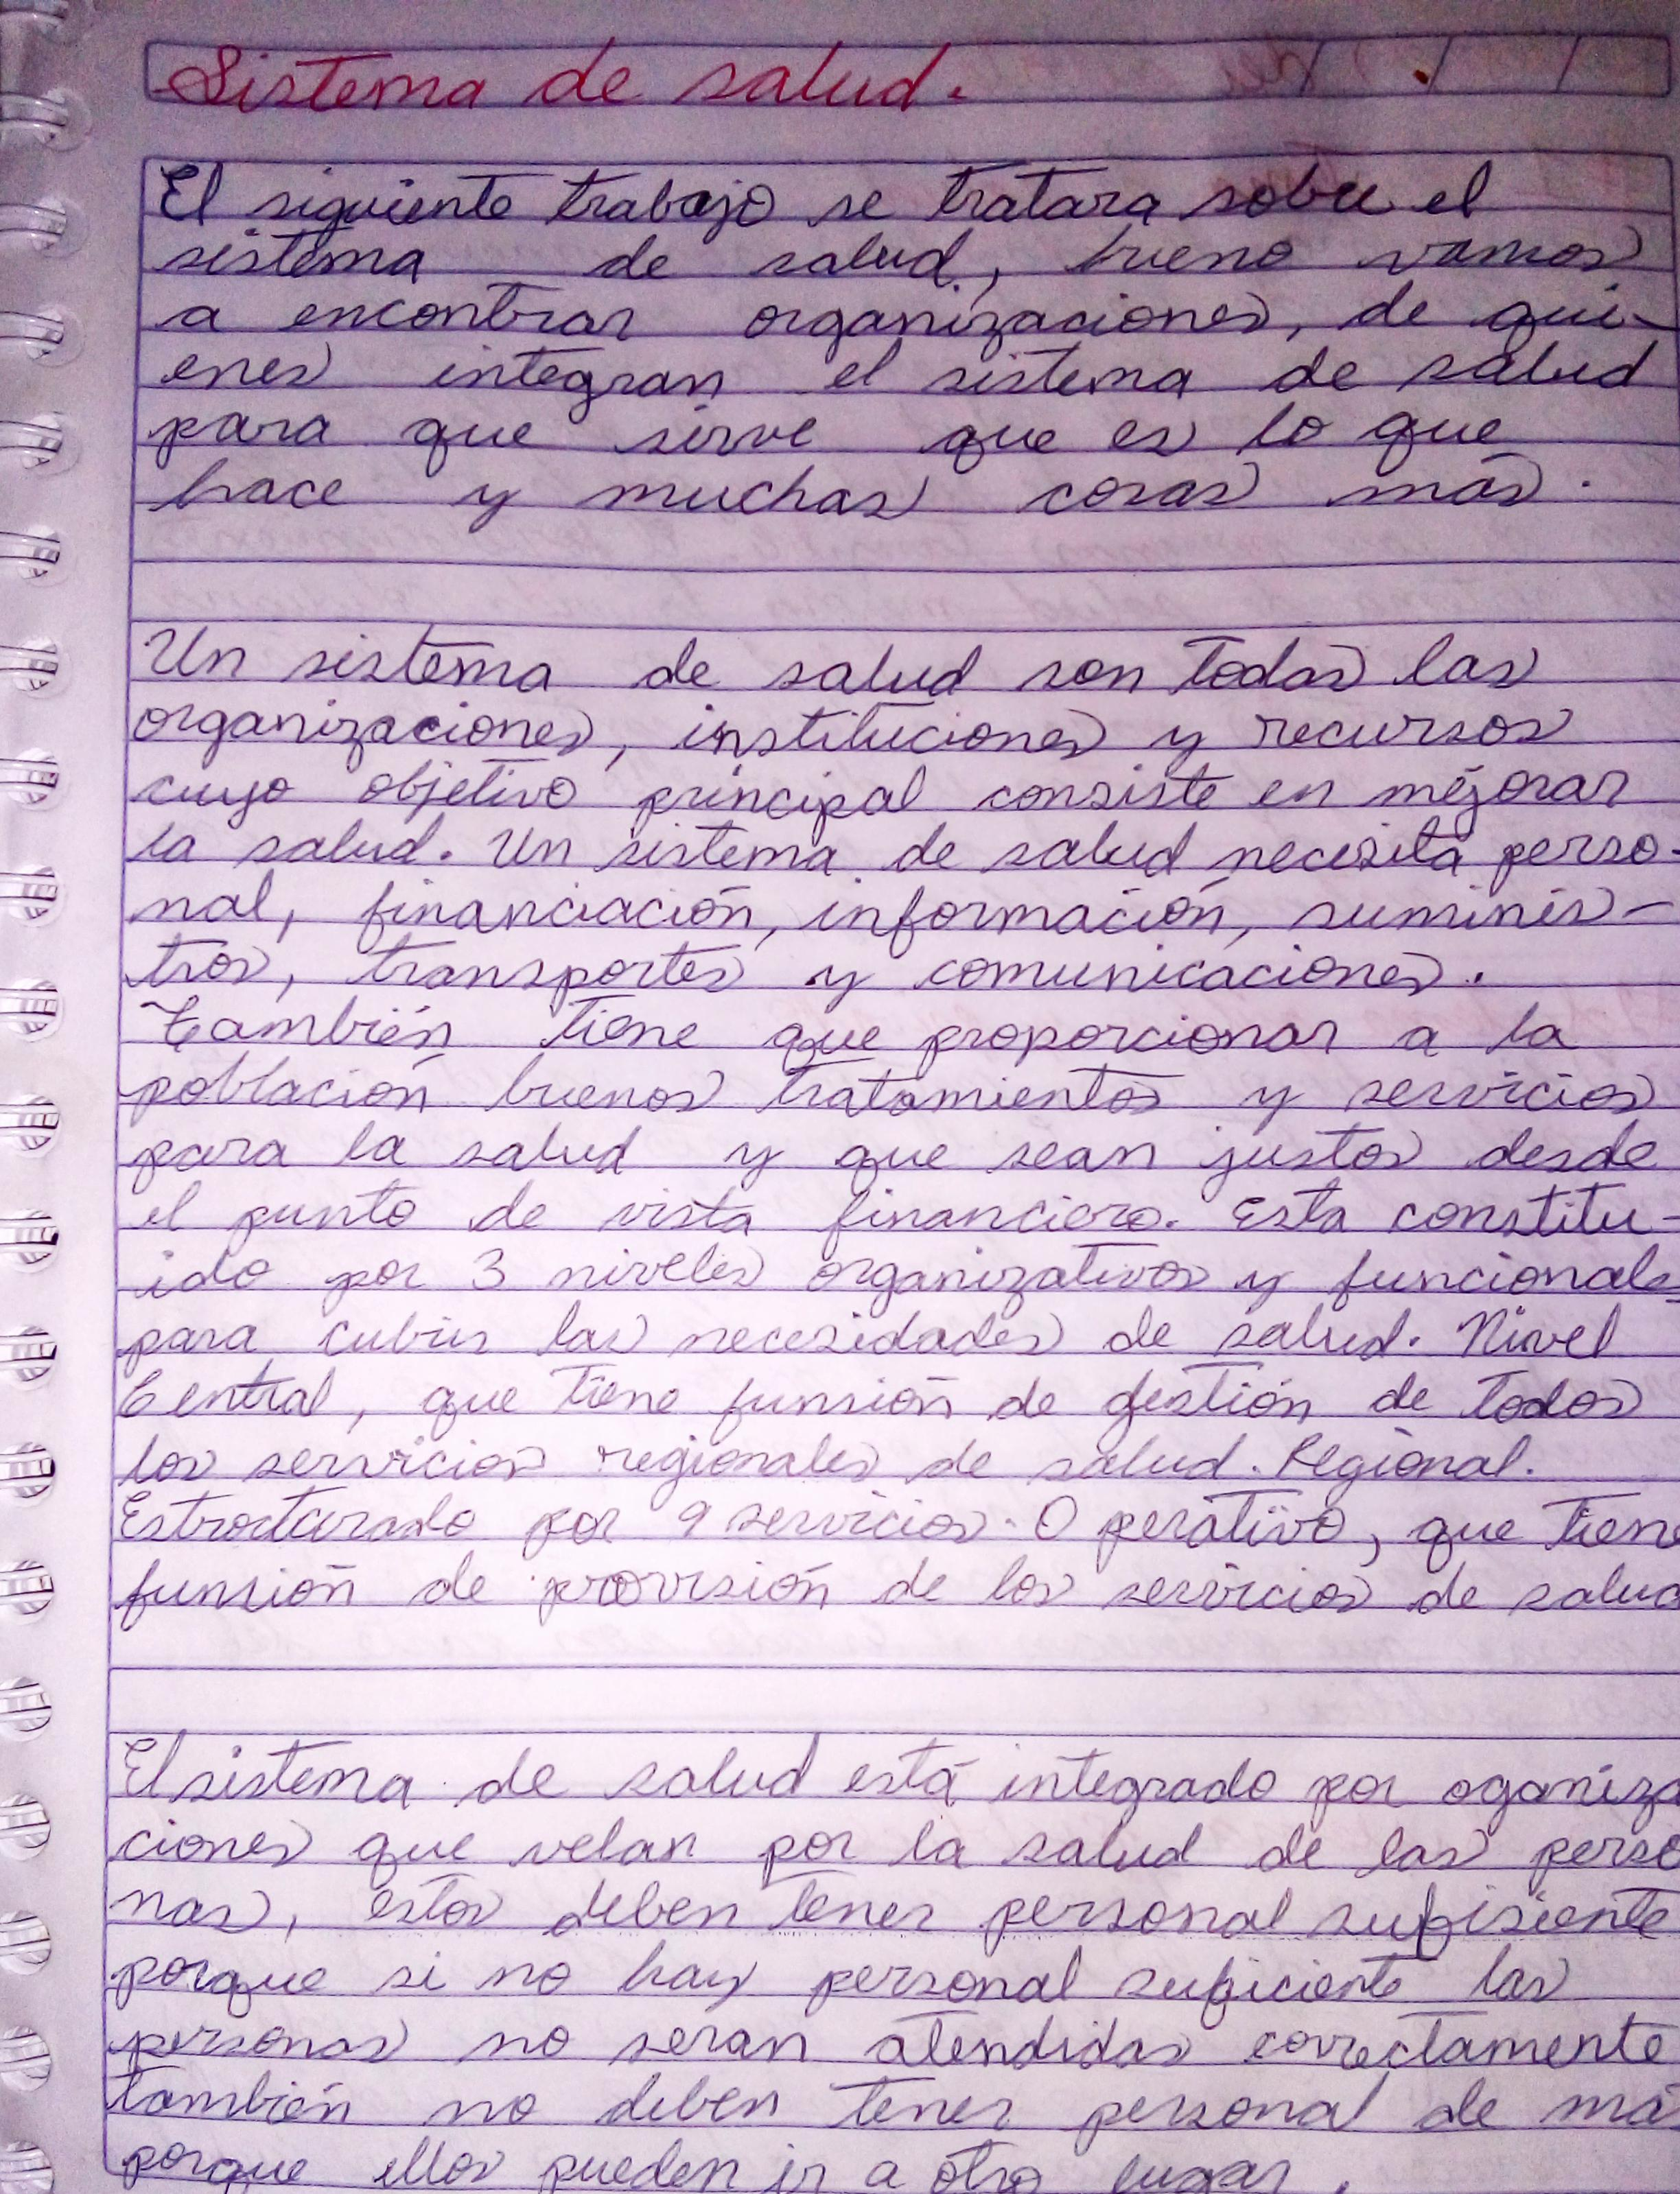 Sistema de salud.
El siguiente trabajo se tratara sobre el
sistema de salud, bueno vamos
a encontrar organizaciones, de qui-
enes integran el sistema de salud
para que sirve que es lo que
hace y muchas cosas más.
Un sistema de salud son todas las
organizaciones, instituciones y recursos
cuyo objetivo principal consiste en mejorar
la salud. Un sistema de salud necesita perso-
nal, financiación, información, suminis-
tros, transportes y comunicaciones.
También tiene que proporcionar a la
población buenos tratamientos y servicios
para la salud y que sean justos desde
el punto de vista financiero. Esta constitu-
ido por 3 niveles organizativos y funcionales
para cubrir las necesidades de salud. Nivel
Central, que tiene funsión de gestión de todos
los servicios regionales de salud. Regional.
Estructurado por 9 servicios. Operativo, que tiene
funsión de provisión de los servicios de salud
El sistema de salud está integrado por oganiza
ciones que velan por la salud de las perso
nas, estos deben tener personal sufisiente
porque si no hay personal suficiente las
personas no seran atendidas correctamente
también no deben tener personal de má
porque ellos pueden ir a otro lugar.